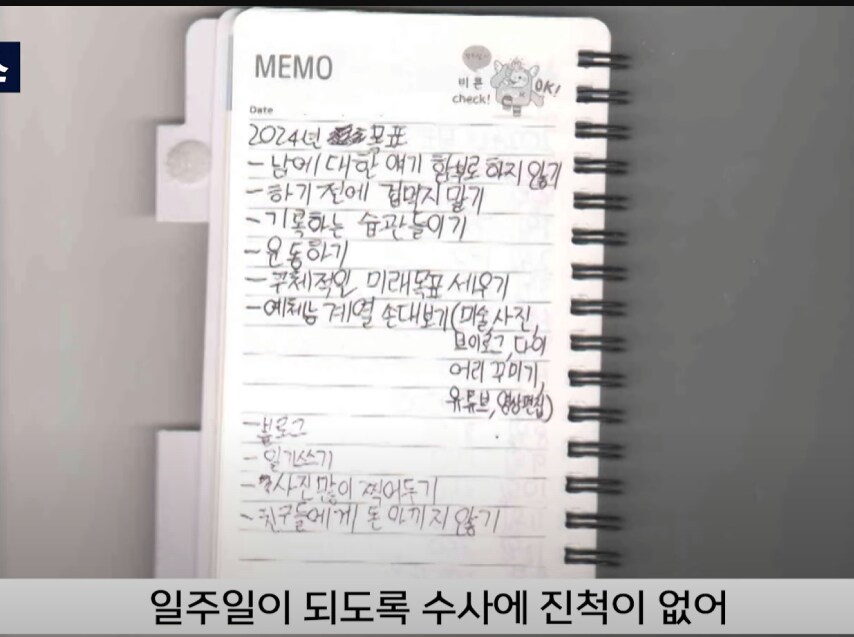 스
MEMO
비 큰
check!
OK!
Date
2024년 목표
- 남에 대한 얘기 함부로 하지 않기
- 하기 전에 겁먹지 말기
- 기록하는 습관들이기
- 운동하기
- 구체적인 미래목표 세우기
- 예체능 계열 손대보기(미술,사진,
브이로그,다이
어리 꾸미기,
유튜브,영상편집)
- 블로그
- 일기쓰기
- 사진 많이 찍어두기
- 친구들에게 돈 아끼지 않기
일주일이 되도록 수사에 진척이 없어